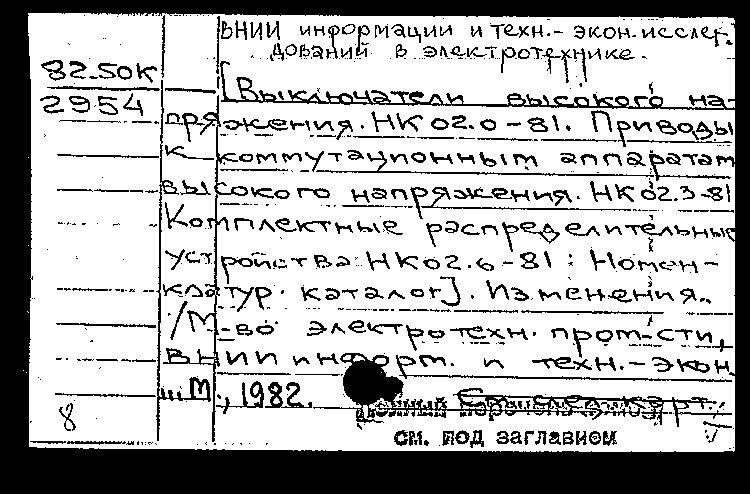 ВНИИ информации и техн.- экон.исслед.
дований в электротехнике.
82-50К
2954
[Выключатели высокого на-
пряжения. НК 02.0-81. Приводы
к коммутационным аппаратам
высокого напряжения. НК 02.3-81
Комплектные распределительные
устройства НК 02.6-81: Номен-
клатур. каталог]. Изменения.
/М-во электротехн. пром-сти,
ВНИИ информ. и техн.-экон
... М., 1982.
8
Полный перечень
см. под заглавием